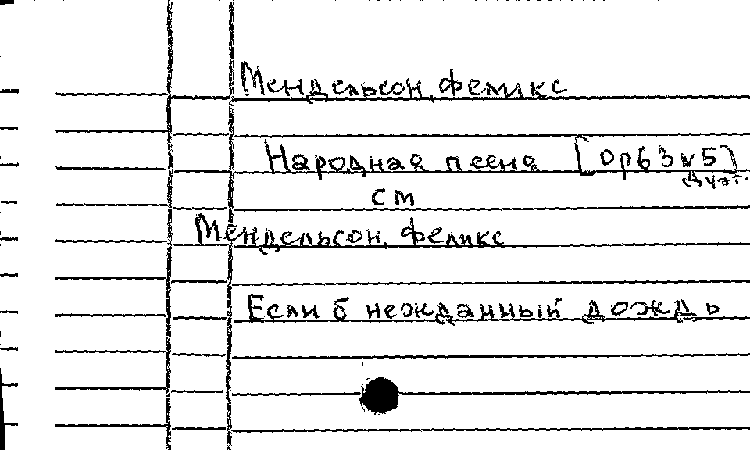 Мендельсон, феликс
Народная песня [op63№5]
дуэт.
см
Мендельсон, феликс
Если б нежданный дождь